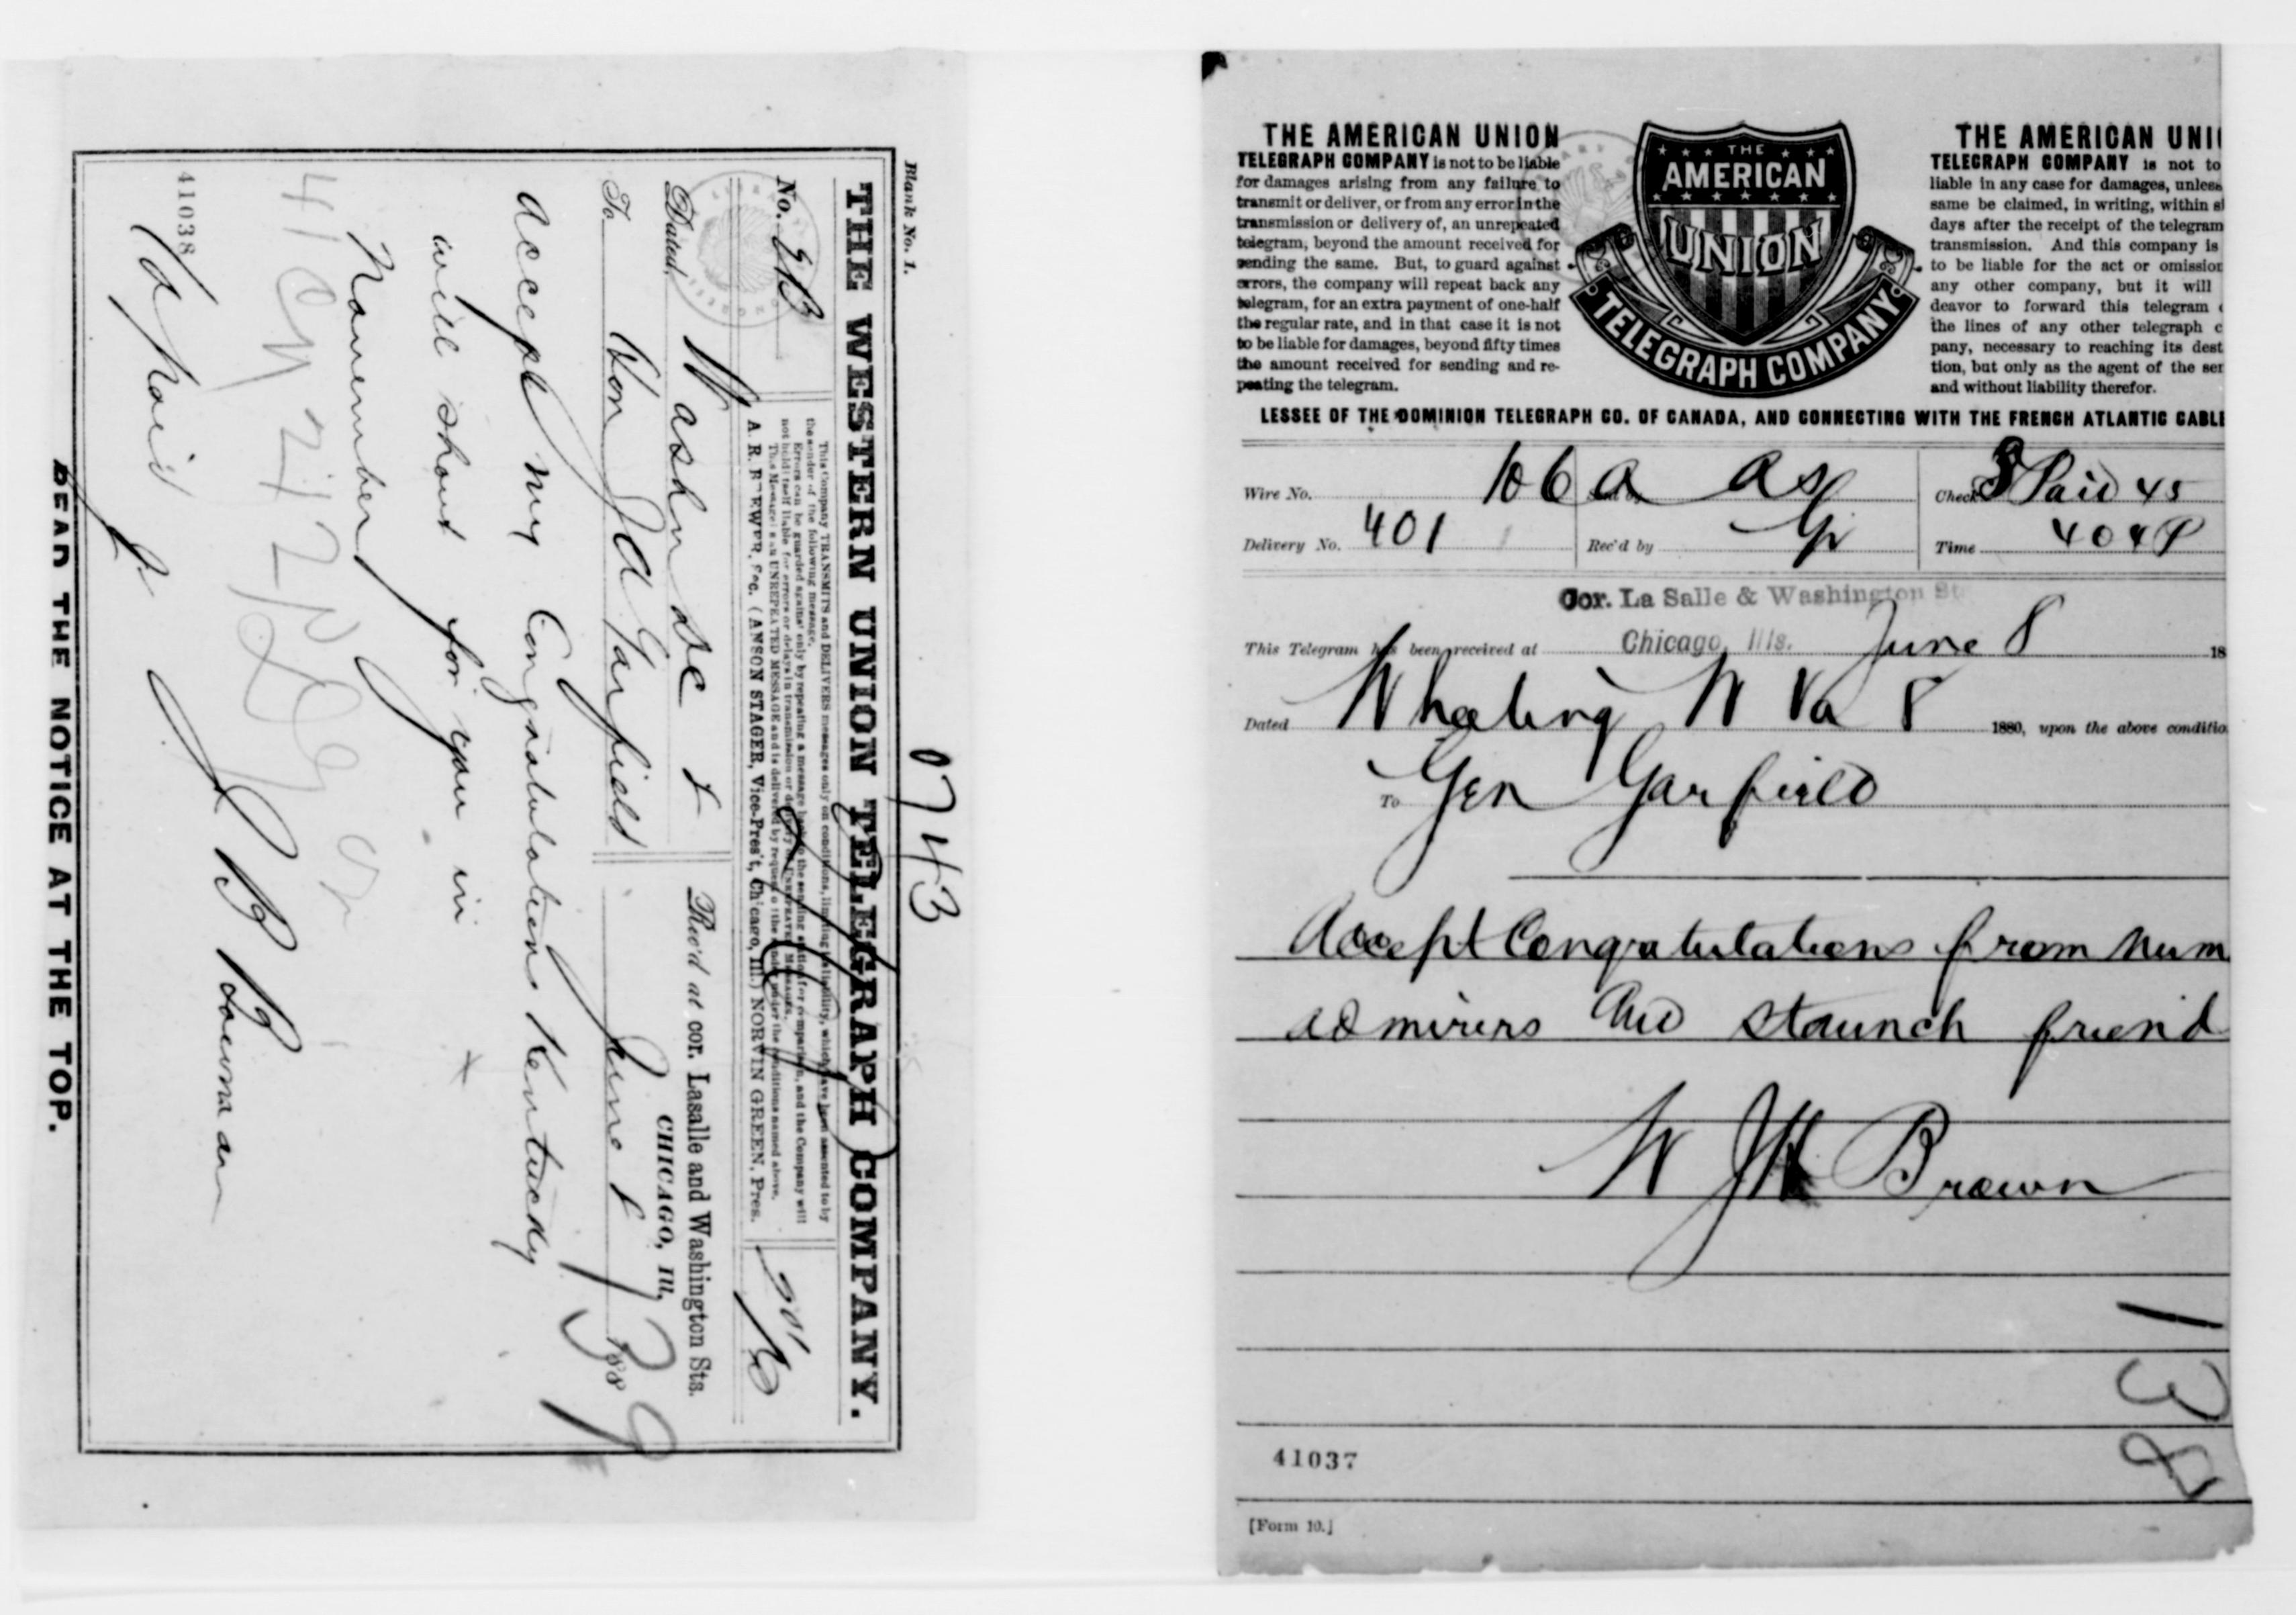 Blank No. 1.
0743
THE WESTERN UNION TELEGRAPH COMPANY.
This Company TRANSMITS and DELIVERS messages only on conditions, limiting its liability, which have been assented to by
the sender of the following message.
Errors can be guarded against only by repeating a message back to the sending station for comparison, and the Company will
not hold itself liable for errors or delays in transmission or delivery of UNREPEATED MESSAGES.
This Message is an UNREPEATED MESSAGE and is delivered by request of the sender under the conditions named above.
A. R. BREWER, Sec. (ANSON STAGER, Vice-Pres't, Chicago, Ill.) NORVIN GREEN, Pres.
No.
Dated, Washn DC 8
Rec'd at cor. Lasalle and Washington Sts.
CHICAGO, Ill.
June 8 188
To Hon Ja Garfield
139
accept my Congratulations Kentucky
will shout for you in
November
J B Bowman
paid
41038
READ THE NOTICE AT THE TOP.
THE AMERICAN UNION
TELEGRAPH COMPANY is not to be liable
for damages arising from any failure to
transmit or deliver, or from any error in the
transmission or delivery of, an unrepeated
telegram, beyond the amount received for
sending the same. But, to guard against
errors, the company will repeat back any
telegram, for an extra payment of one-half
the regular rate, and in that case it is not
to be liable for damages, beyond fifty times
the amount received for sending and re-
peating the telegram.
THE AMERICAN UNION TELEGRAPH COMPANY
THE AMERICAN UNI
TELEGRAPH COMPANY is not to
liable in any case for damages, unless
same be claimed, in writing, within s
days after the receipt of the telegram
transmission. And this company is
to be liable for the act or omission
any other company, but it will
deavor to forward this telegram
the lines of any other telegraph c
pany, necessary to reaching its dest
tion, but only as the agent of the sen
and without liability therefor.
LESSEE OF THE DOMINION TELEGRAPH CO. OF CANADA, AND CONNECTING WITH THE FRENCH ATLANTIC CABLE
Wire No. 106 a Sent by as Check 8 Paid 45
Delivery No. 401 Rec'd by Time 404P
Cor. La Salle & Washington St
This Telegram has been received at Chicago, Ills. June 8 18
Dated Wheeling W Va 8 1880, upon the above conditio
To Gen Garfield
Accept Congratulations from num
admirers and staunch friend
W JH Brown
138
41037
[Form 10.]